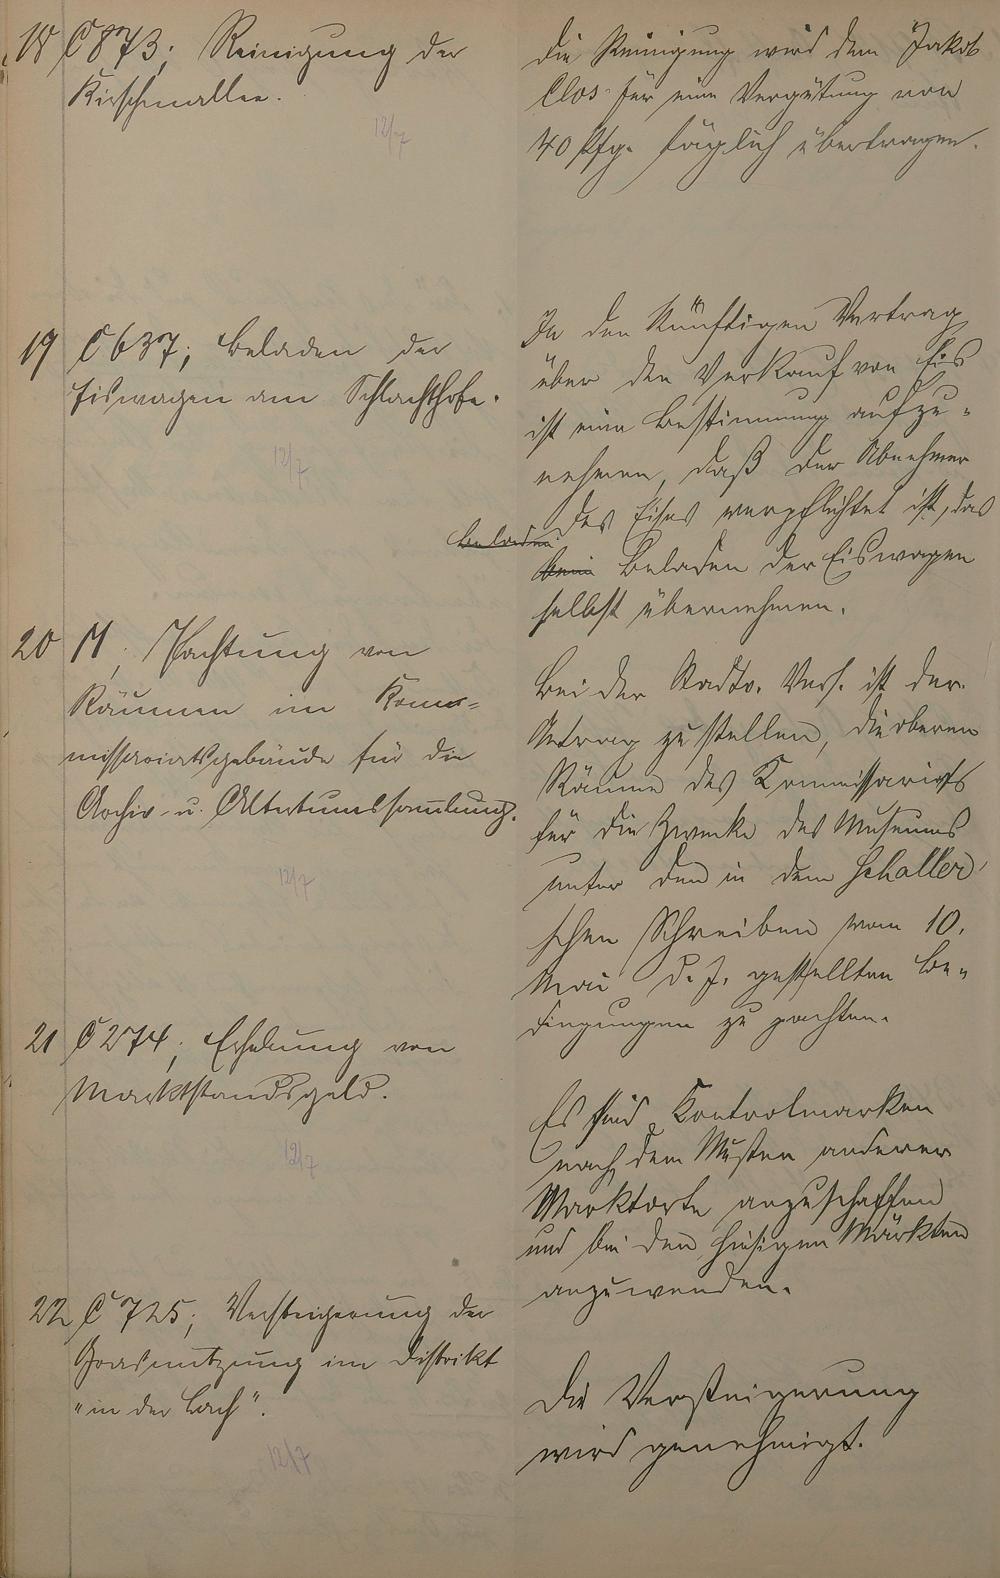 18 C 873; Reinigung der
Kirschenallee.
12/7
Die Reinigung wird dem Jakob
Clos für eine Vergütung von
40 Pfg. täglich übertragen.
19 C 637; Beladen der
Eiswagen am Schlachthofe.
12/7
In den künftigen Vertrag
über den Verkauf von Eis
ist eine Bestimmung aufzu-
nehmen, daß der Abnehmer
des Eises verpflichtet ist, das
Beladen
beim Beladen der Eiswagen
selbst übernehmen.
20 M; Pachtung von
Räumen im Kom-
missariatsgebäude für die
Archiv- u. Altertumssammlung.
12/7
Bei der Stadtv. Vers. ist der
Antrag zu stellen, die oberen
Räume des Kommissariats
für die Zwecke des Museums
unter den in dem Schaller'
schen Schreiben vom 10.
Mai d. J. gestellten Be-
dingungen zu pachten.
21 C 274; Erhebung von
Marktstandsgeld.
12/7
Es sind Kontrolmarken
nach dem Muster anderer
Marktorte anzuschaffen
und bei den hiesigen Märkten
anzuwenden.
22 C 725; Versteigerung der
Grasnutzung im Distrikt
"in der Lach".
12/7
Die Versteigerung
wird genehmigt.